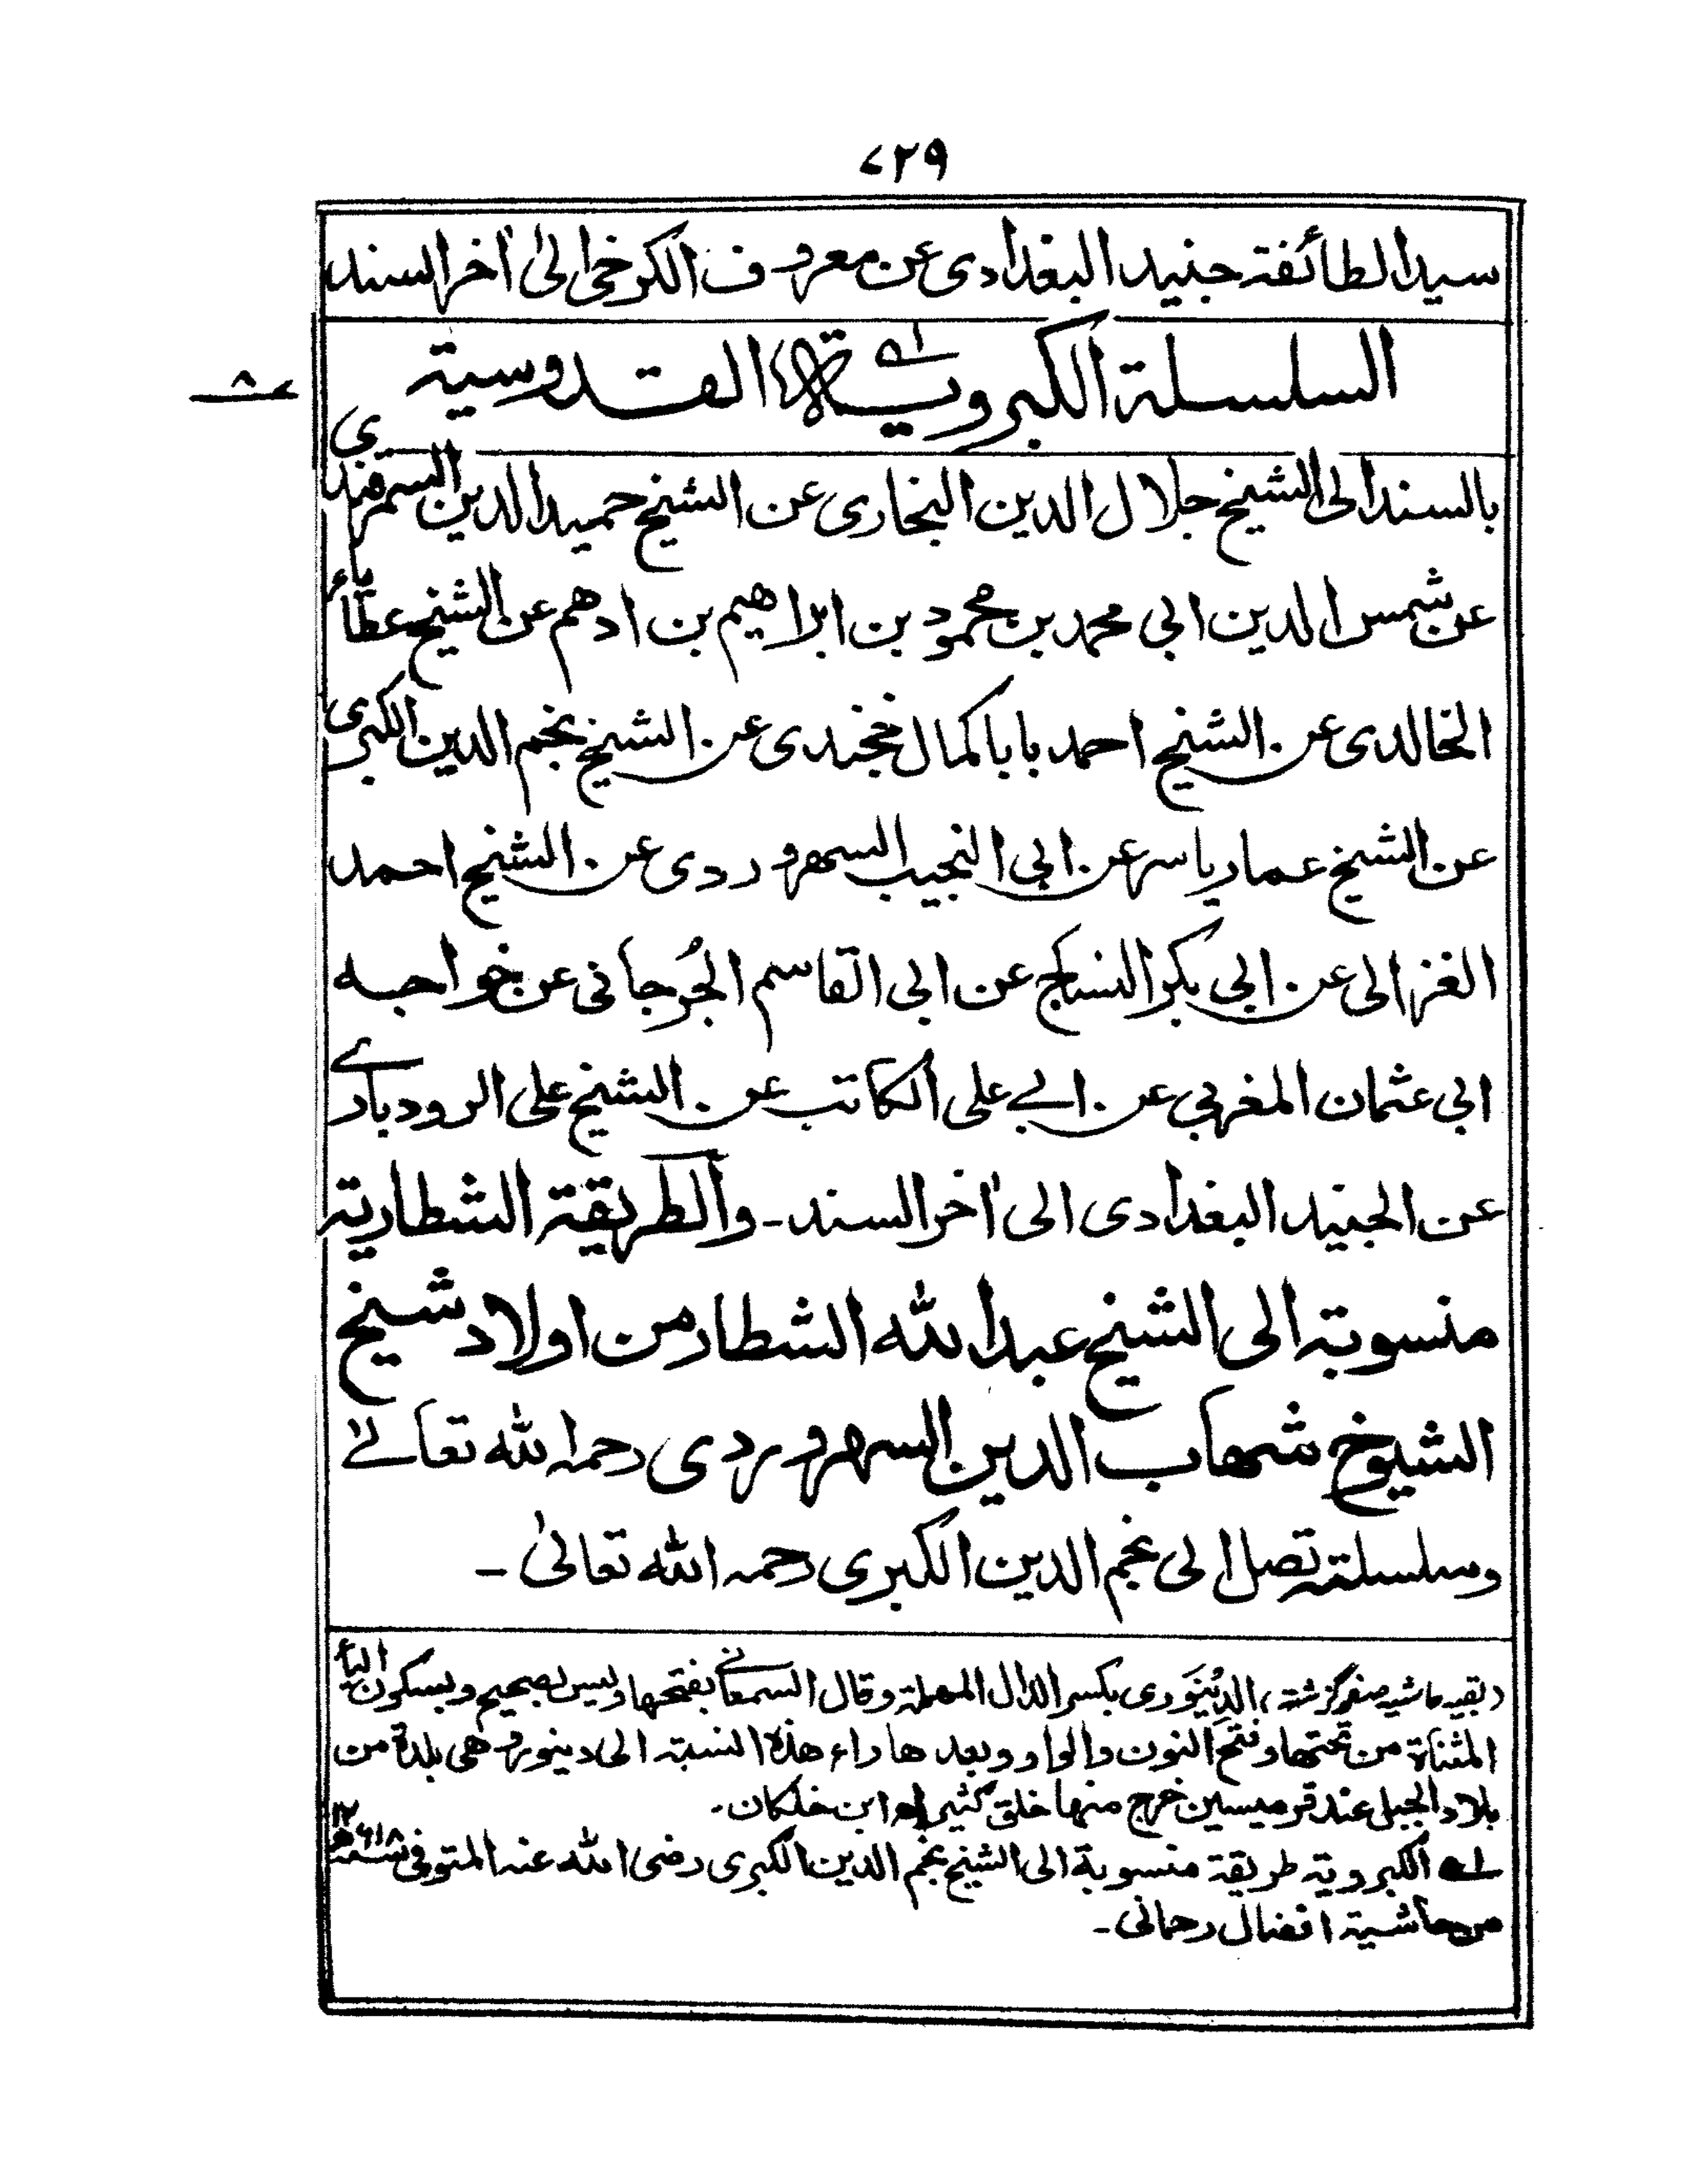 ۷۲۹
سید الطائفۃ جنید البغدادی عن معروف الکرخی الیٰ اٰخر السند
السلسلۃ الکبرویۃ القدوسیۃ
۸
بالسند الی الشیخ جلال الدین البخاری عن الشیخ حمید الدین السمرقندی
عن شمس الدین ابی محمد بن محمود بن ابراھیم بن ادھم عن الشیخ عطایاء
الخالدی عن الشیخ احمد بابا کمال خجندی عن الشیخ نجم الدین الکبری
عن الشیخ عمار یاسر عن ابی النجیب السھروردی عن الشیخ احمد
الغزالی عن ابی بکر النساج عن ابی القاسم الجُرجانی عن خواجہ
ابی عثمان المغربی عن ابی علی الکاتب عن الشیخ علی الرودباری
عن الجنید البغدادی الی اٰخر السند۔ والطریقۃ الشطاریۃ
منسوبۃ الی الشیخ عبداللہ الشطار من اولاد شیخ
الشیوخ شھاب الدین السھروردی رحمہ اللہ تعالیٰ
وسلسلتہ تصل الی نجم الدین الکبری رحمہ اللہ تعالیٰ۔
(بقیہ حاشیہ صفحہ گزشتہ) الدِیْنَوَری بکسر الدال المھملۃ وقال السمعانی بفتحھا ولیس بصحیح وبسکون الیاء
المثناۃ من تحتھا وفتح النون والواو وبعدھا راء ھذہ النسبۃ الی دینور وھی بلدۃ من
بلاد الجبل عند قرمیسین خرج منھا خلق کثیر اھ ابن خلکان۔
لہ الکبرویۃ طریقۃ منسوبۃ الی الشیخ نجم الدین الکبری رضی اللہ عنہ المتوفی سنہ ۶۱۸ھ ۱۲
من حاشیۃ افضال رحمانی۔